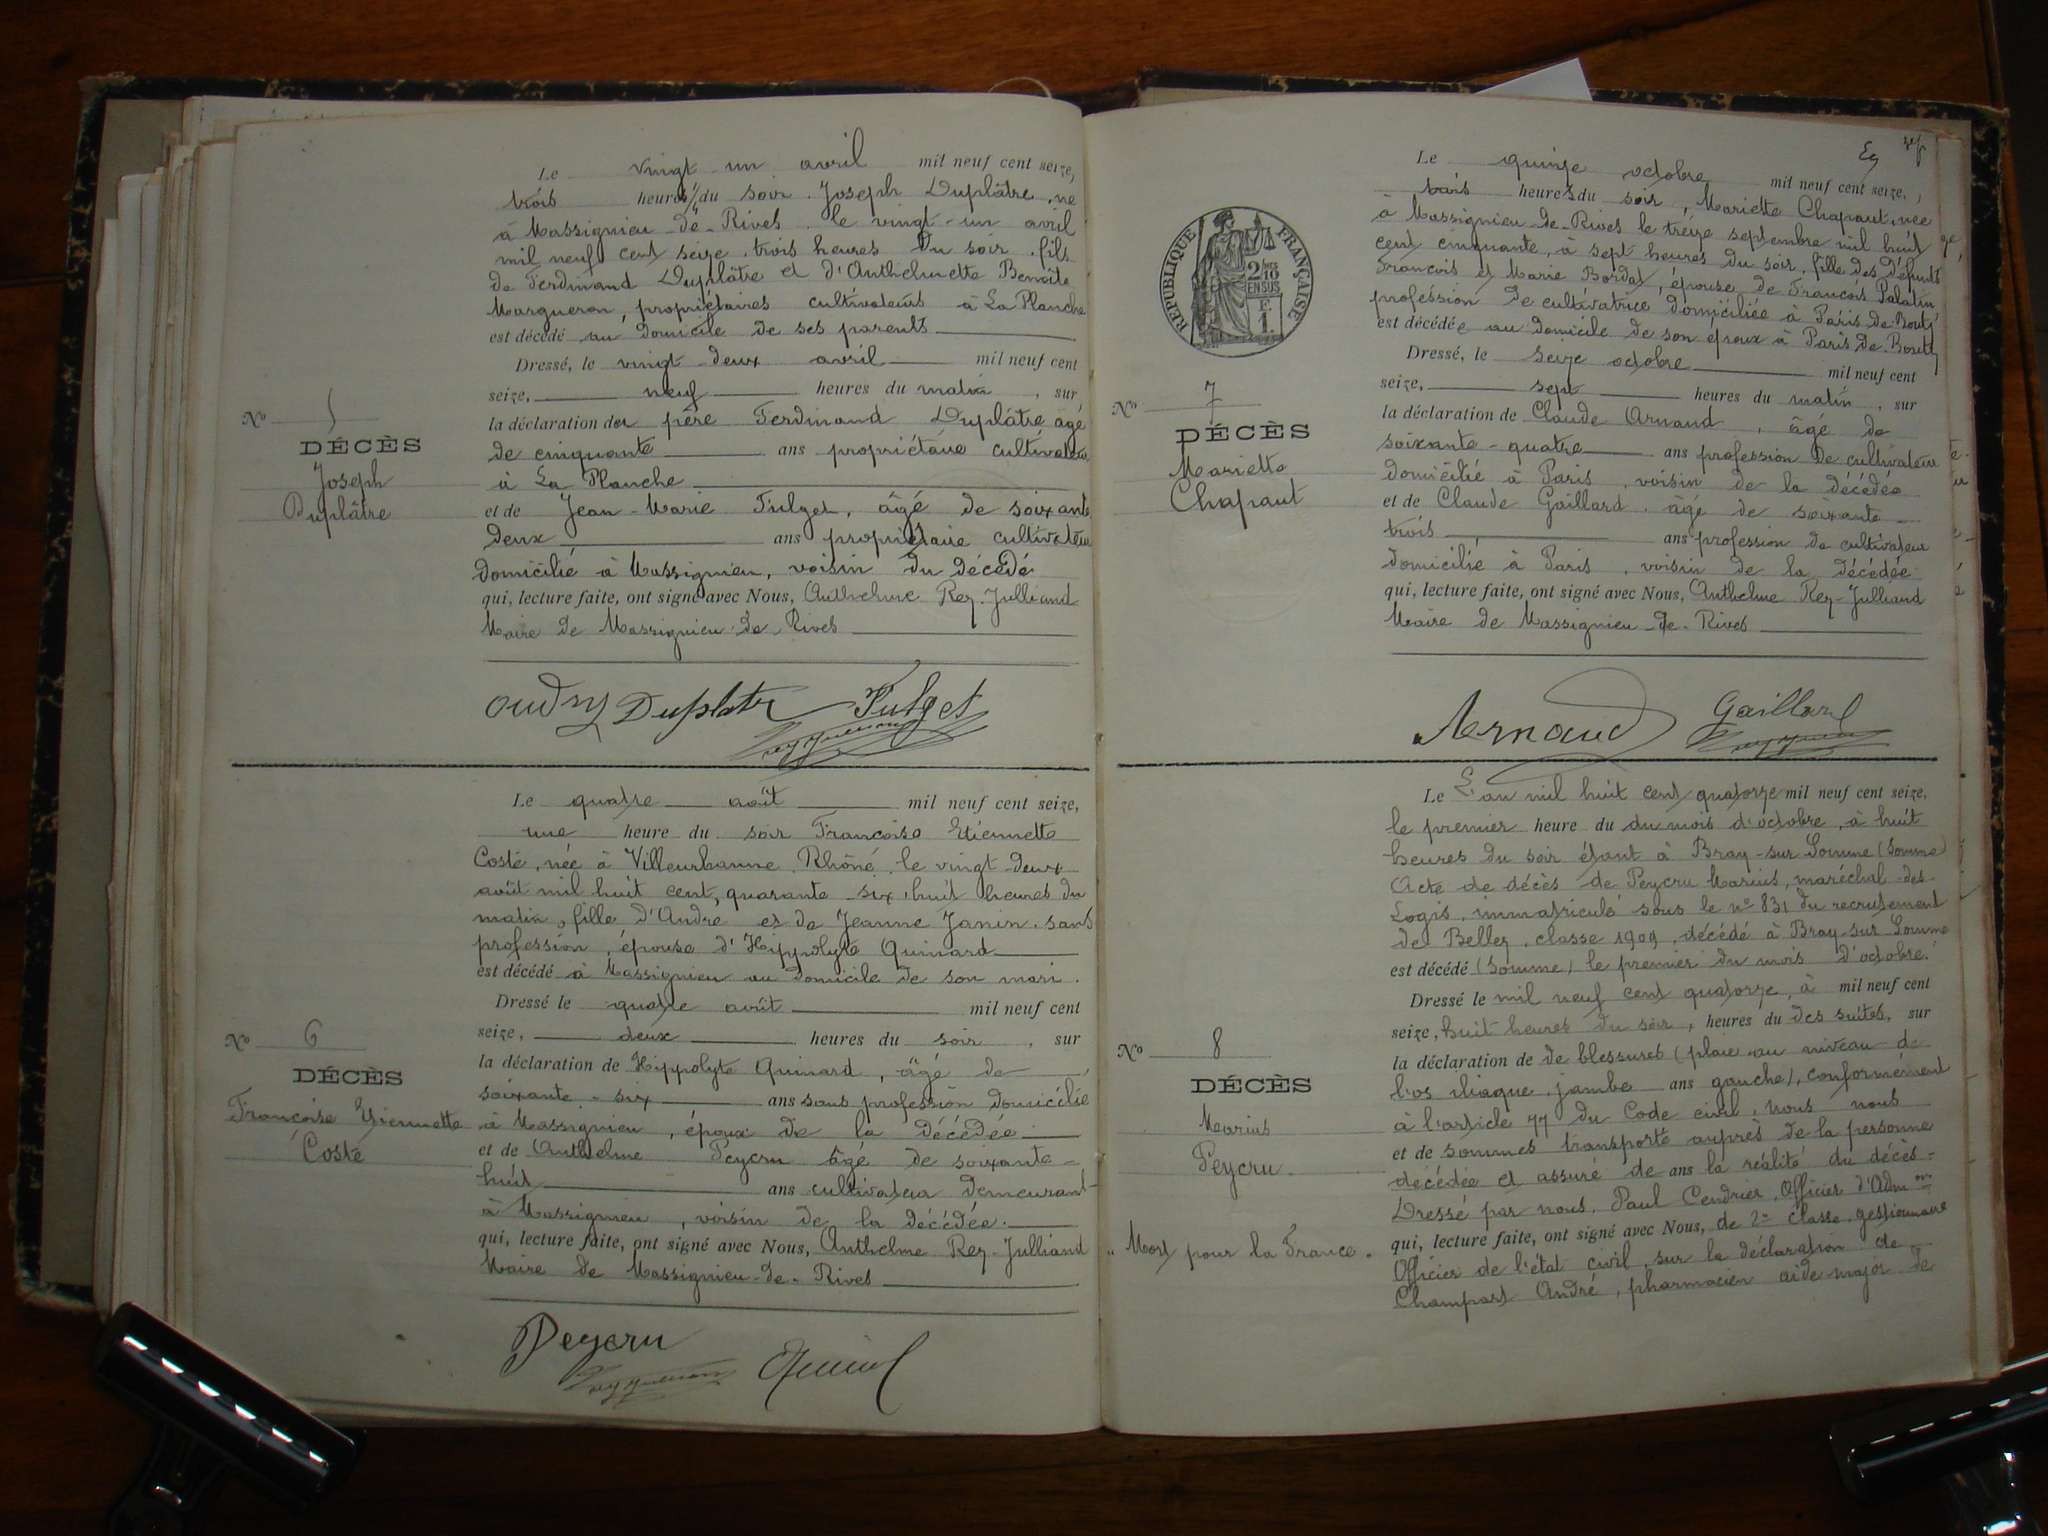 Le vingt un avril mil neuf cent seize,
trois heures ½ du soir. Joseph Duplâtre, né
à Massignieu-de-Rives le vingt-un avril
mil neuf cent seize, trois heures du soir, fils
de Ferdinand Duplâtre et d'Anthelmette Benoîte
Margueron, propriétaires cultivateurs à La Planche
est décédé au domicile de ses parents
Dressé, le vingt deux avril mil neuf cent
seize, neuf heures du matin, sur
la déclaration du père Ferdinand Duplâtre âgé
de cinquante ans propriétaire cultivateur
à La Planche
et de Jean-Marie Fulget, âgé de soixante
deux ans propriétaire cultivateur
domicilié à Massignieu, voisin du décédé
qui, lecture faite, ont signé avec Nous, Anthelme Rey-Julliand
Maire de Massignieu-de-Rives
No 5
DÉCÈS
Joseph
Duplâtre
Oudry Duplatre Fulget
Le quatre août mil neuf cent seize,
une heure du soir Françoise Etiennette
Coste, née à Villeurbanne Rhône le vingt-deux
août mil huit cent, quarante-six, huit heures du
matin, fille d'André et de Jeanne Janin, sans
profession, épouse d'Hippolyte Quinard
est décédé à Massignieu au domicile de son mari.
Dressé le quatre août mil neuf cent
seize, deux heures du soir, sur
la déclaration de Hippolyte Quinard, âgé de
soixante-six ans sans profession domicilié
à Massignieu, époux de la décédée
et de Anthelme Peycru âgé de soixante-
huit ans cultivateur demeurant
à Massignieu, voisin de la décédée.
qui, lecture faite, ont signé avec Nous, Anthelme Rey-Julliand
Maire de Massignieu-de-Rives
No 6
DÉCÈS
Françoise Etiennette
Coste
Peycru
RÉPUBLIQUE FRANÇAISE
2/10 EN SUS
F. 1.
Le quinze octobre mil neuf cent seize,
trois heures du soir, Mariette Chapaut, née
à Massignieu-de-Rives le treize septembre mil huit
cent cinquante, à sept heures du soir, fille des défunts
François et Marie Bordat, épouse de François Palatin
profession de cultivatrice domiciliée à Paris de
est décédée au domicile de son époux à Paris de
Dressé, le seize octobre mil neuf cent
seize, sept heures du matin, sur
la déclaration de Claude Arnaud, âgé de
soixante-quatre ans profession de cultivateur
domicilié à Paris, voisin de la décédée
et de Claude Gaillard, âgé de soixante-
trois ans profession de cultivateur
domicilié à Paris, voisin de la décédée
qui, lecture faite, ont signé avec Nous, Anthelme Rey-Julliand
Maire de Massignieu-de-Rives
No 7
DÉCÈS
Mariette
Chapaut
Arnaud Gaillard
Le L'an mil huit cent quatorze mil neuf cent seize,
le premier heure du du mois d'octobre, à huit
heures du soir étant à Bray-sur-Somme (Somme)
Acte de décès de Peycru Marius, maréchal-des-
Logis, immatriculé sous le no 831 du recrutement
de Belley, classe 1909, décédé à Bray-sur-Somme
est décédé (Somme) le premier du mois d'octobre
Dressé le mil neuf cent quatorze, à mil neuf cent
seize, huit heures du soir, heures du des suites, sur
la déclaration de de blessures (plaie au niveau de
l'os iliaque, jambe ans gauche), conformément
à l'article 77 du Code civil, nous nous
et de sommes transporté auprès de la personne
décédée et assuré de ans la réalité du décès-
Dressé par nous, Paul Cendrier, Officier d'Adm on
qui, lecture faite, ont signé avec Nous, de 2e classe, gestionnaire
Officier de l'état civil, sur la déclaration de
Champart André, pharmacien aide-major de
No 8
DÉCÈS
Marius
Peycru
"Mort pour la France.